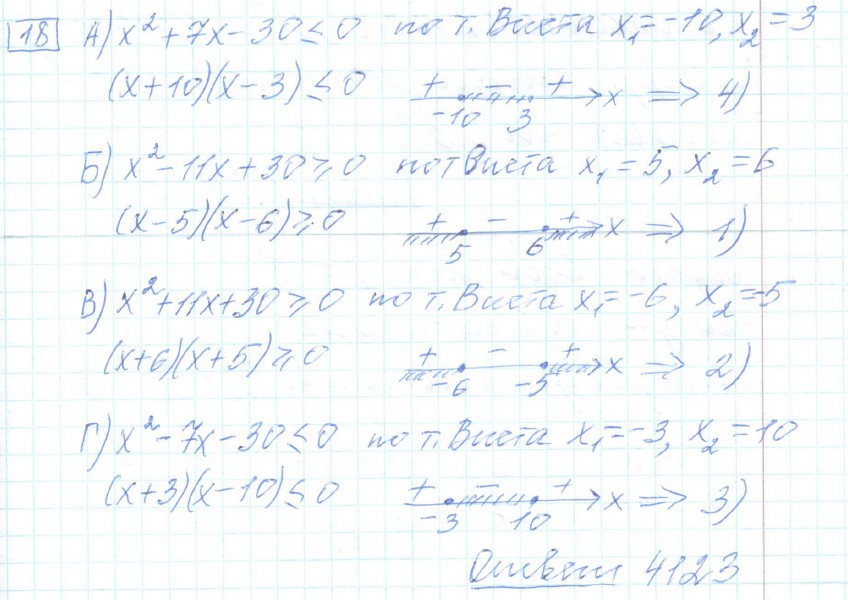 18 А) x²+7x-30≤0 по т. Виета x₁=-10, x₂=3
(x+10)(x-3)≤0 + - + -10 3 x ⇒ 4)
Б) x²-11x+30≥0 по т Виета x₁=5, x₂=6
(x-5)(x-6)≥0 + - + 5 6 x ⇒ 1)
В) x²+11x+30≥0 по т. Виета x₁=-6, x₂=-5
(x+6)(x+5)≥0 + - + -6 -5 x ⇒ 2)
Г) x²-7x-30≤0 по т. Виета x₁=-3, x₂=10
(x+3)(x-10)≤0 + - + -3 10 x ⇒ 3)
Ответ 4123